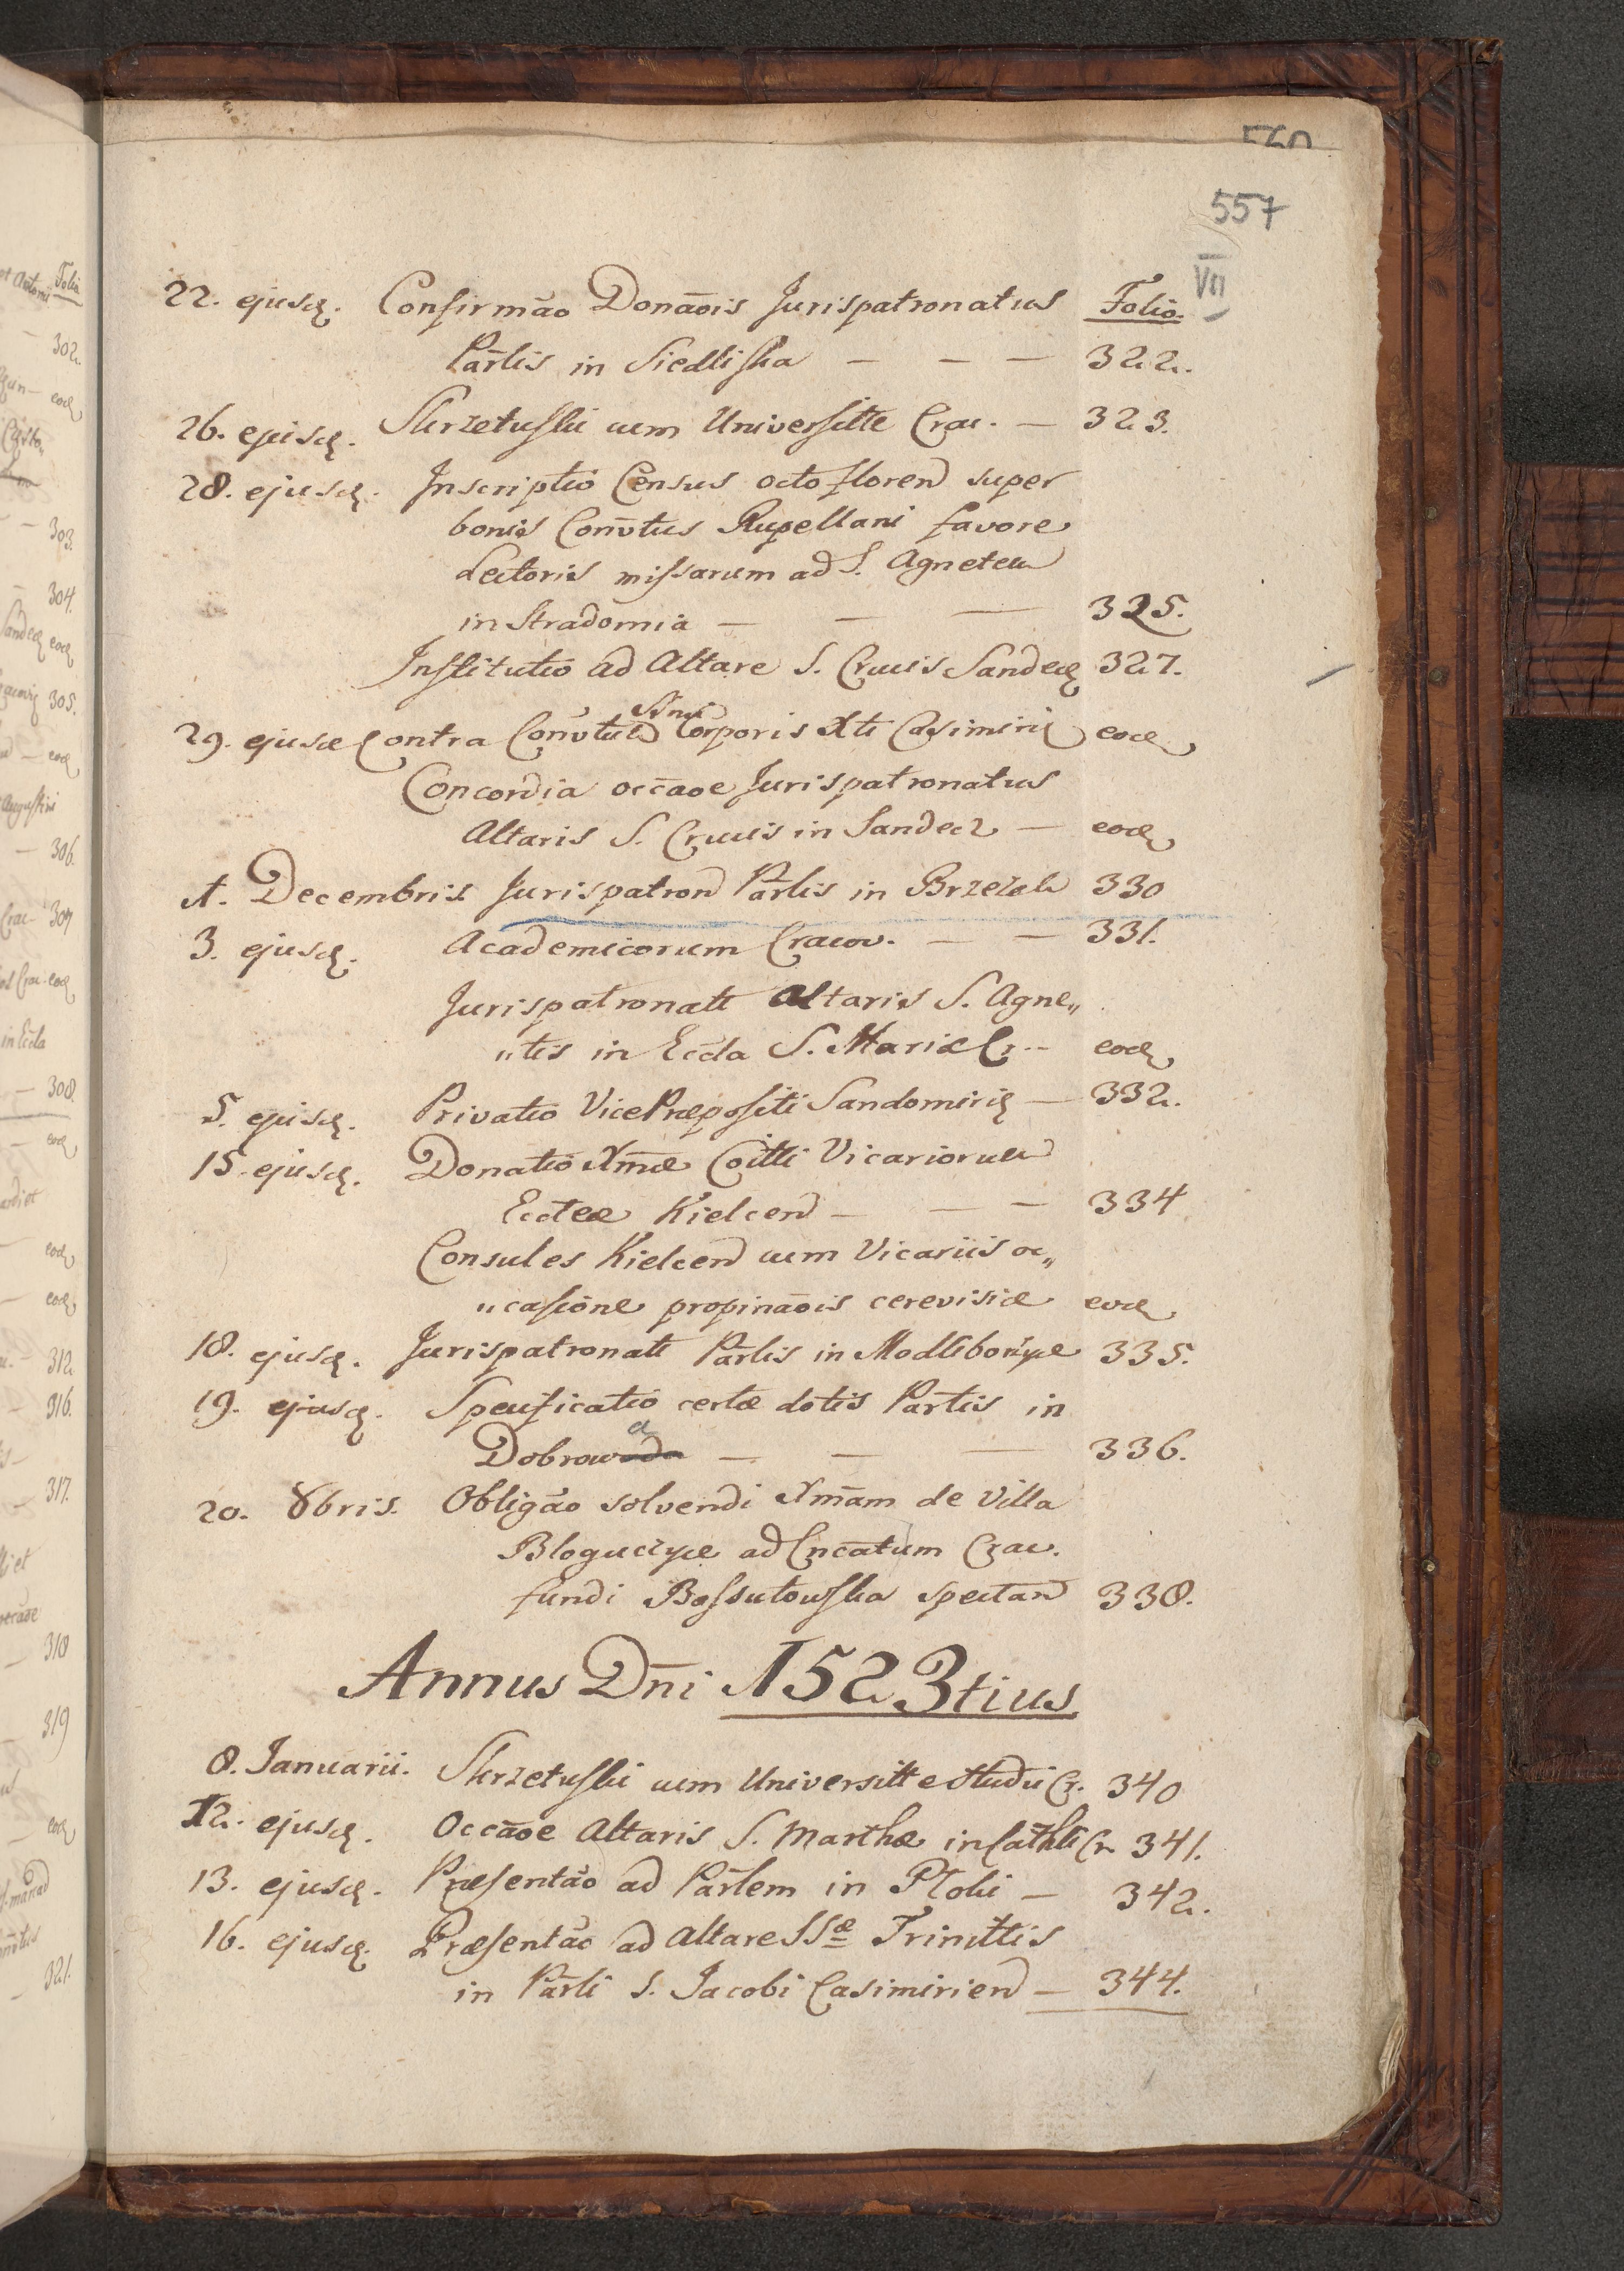 560
557
VII
22. ejusd. Confirmāo Donāois Jurispatronatus Folio.
Pārlis in Siedliska — — — 322.
26. ejusd. Skrzetuski cum Universitte Crac. — 323.
28. ejusd. Inscriptio Census octo floren super
bonis Conv̄tus Rupellani favore
Lectoris missarum ad S. Agnetem
in Stradomia — — — 325.
Institutio ad Altare S. Crucis Sandec 327.
29. ejusd Contra Conv̄tum Corporis Xti Casimiriē eod
Concordia occāoe Jurispatronatus
Altaris S. Crucis in Sandecz — eod
1. Decembris Jurispatron Pārlis in Brzezek 330
3. ejusd. Academicorum Cracov. — — 331.
Jurispatronatt Altaris S. Agne„
„tis in Eccla S. Mariæ Cr. — eod
5. ejusd. Privatio VicePræpositi Sandomiriē — 332.
15. ejusd. Donatio Xmæ Coitti Vicariorum
Ecclæ Kielcen — — — 334
Consules Kielcen cum Vicariis oc„
„casione propināois cerevisiæ eod
18. ejusd. Jurispatronatt Pārlis in Modliborzyce 335.
19. ejusd. Specificatio certæ dotis Pārlis in
a
Dobrowoda — — — 336.
20. 8bris. Obligāo solvendi Xmām de Villa
Bloguczyce ad Cncātum Crac.
fundi Bossutowska spectan 338.
Annus Dn̄i 1523tius
8. Januarii. Skrzetuski cum Universitte Studii Cr. 340
12. ejusd. Occāoe Altaris S. Marthæ in Cāthli Cr 341.
13. ejusd. Præsentāo ad Pārlem in Ptoki — 342.
16. ejusd. Præsentāo ad Altare SSæ Trinittis
in Pārli S. Jacobi Casimirien — 344.